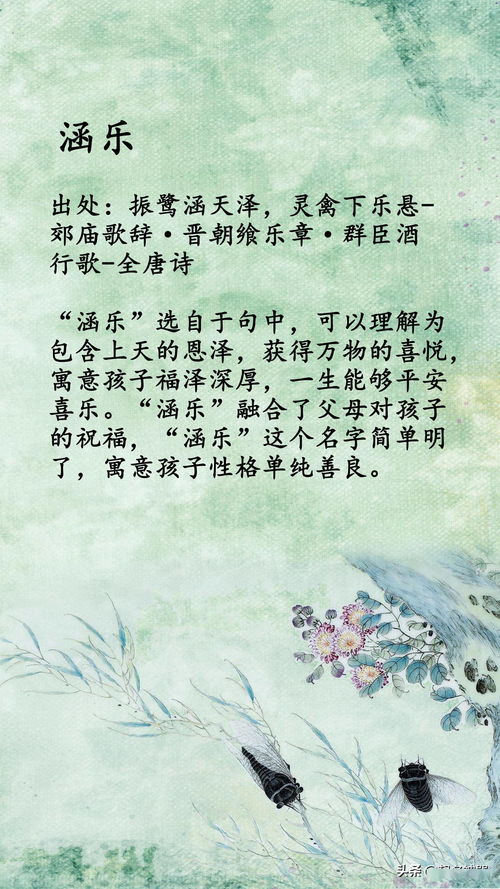 涵乐
出处：振鹭涵天泽，灵禽下乐悬-
郊庙歌辞·晋朝飨乐章·群臣酒
行歌-全唐诗
“涵乐”选自于句中，可以理解为
包含上天的恩泽，获得万物的喜悦，
寓意孩子福泽深厚，一生能够平安
喜乐。“涵乐”融合了父母对孩子
的祝福，“涵乐”这个名字简单明
了，寓意孩子性格单纯善良。
头条